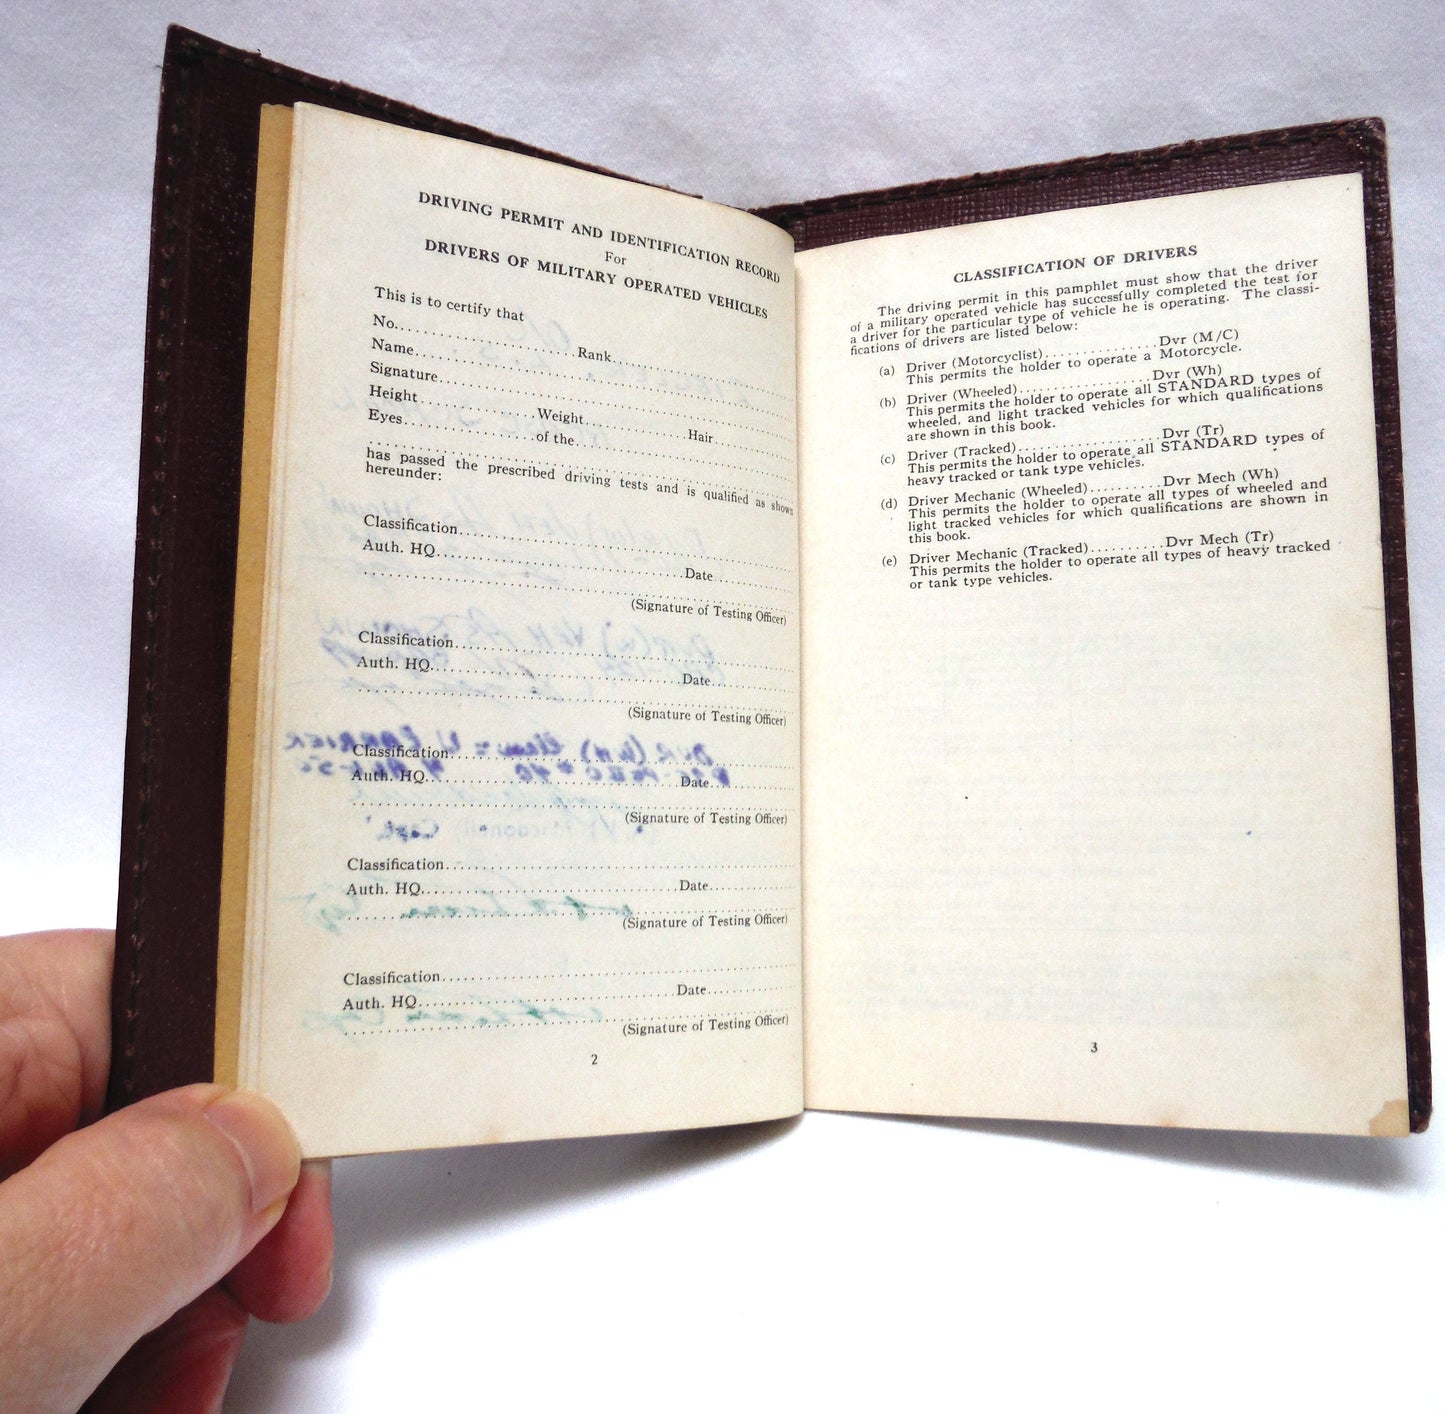 DRIVING PERMIT AND IDENTIFICATION RECORD
For
DRIVERS OF MILITARY OPERATED VEHICLES
This is to certify that
No.......................Rank.......................
Name..............................................
Signature..............................................
Height................Weight................Hair................
Eyes....................of the..............................
..............................................
has passed the prescribed driving tests and is qualified as shown
hereunder:
Classification..............................................
Auth. HQ..............................Date................
..............................................
(Signature of Testing Officer)
Classification..............................................
Auth. HQ..............................Date................
..............................................
(Signature of Testing Officer)
Classification..............................................
Auth. HQ..............................Date................
..............................................
(Signature of Testing Officer)
Classification..............................................
Auth. HQ..............................Date................
..............................................
(Signature of Testing Officer)
Classification..............................................
Auth. HQ..............................Date................
..............................................
(Signature of Testing Officer)
2
CLASSIFICATION OF DRIVERS
The driving permit in this pamphlet must show that the driver
of a military operated vehicle has successfully completed the test for
a driver for the particular type of vehicle he is operating. The classi-
fications of drivers are listed below:
(a) Driver (Motorcyclist)................Dvr (M/C)
This permits the holder to operate a Motorcycle.
(b) Driver (Wheeled)....................Dvr (Wh)
This permits the holder to operate all STANDARD types of
wheeled, and light tracked vehicles for which qualifications
are shown in this book.
(c) Driver (Tracked).....................Dvr (Tr)
This permits the holder to operate all STANDARD types of
heavy tracked or tank type vehicles.
(d) Driver Mechanic (Wheeled)..........Dvr Mech (Wh)
This permits the holder to operate all types of wheeled and
light tracked vehicles for which qualifications are shown in
this book.
(e) Driver Mechanic (Tracked)..........Dvr Mech (Tr)
This permits the holder to operate all types of heavy tracked
or tank type vehicles.
3